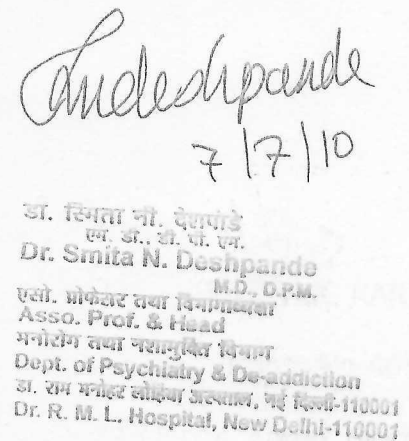 Smdeshpande
7/7/10
डा. स्मिता नी. देशपांडे
एम. डी., डी. पी. एम.
Dr. Smita N. Deshpande
M.D., D.P.M.
एसो. प्रोफेसर तथा विभागाध्यक्षा
Asso. Prof. & Head
मनोरोग तथा नशामुक्ति विभाग
Dept. of Psychiatry & De-addiction
डा. राम मनोहर लोहिया अस्पताल, नई दिल्ली-110001
Dr. R. M. L. Hospital, New Delhi-110001